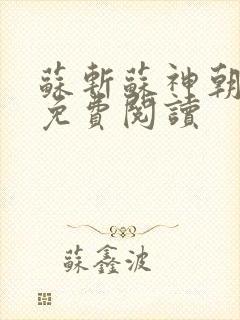 蘇斬蘇神朝
免費閱讀
蘇鑫波